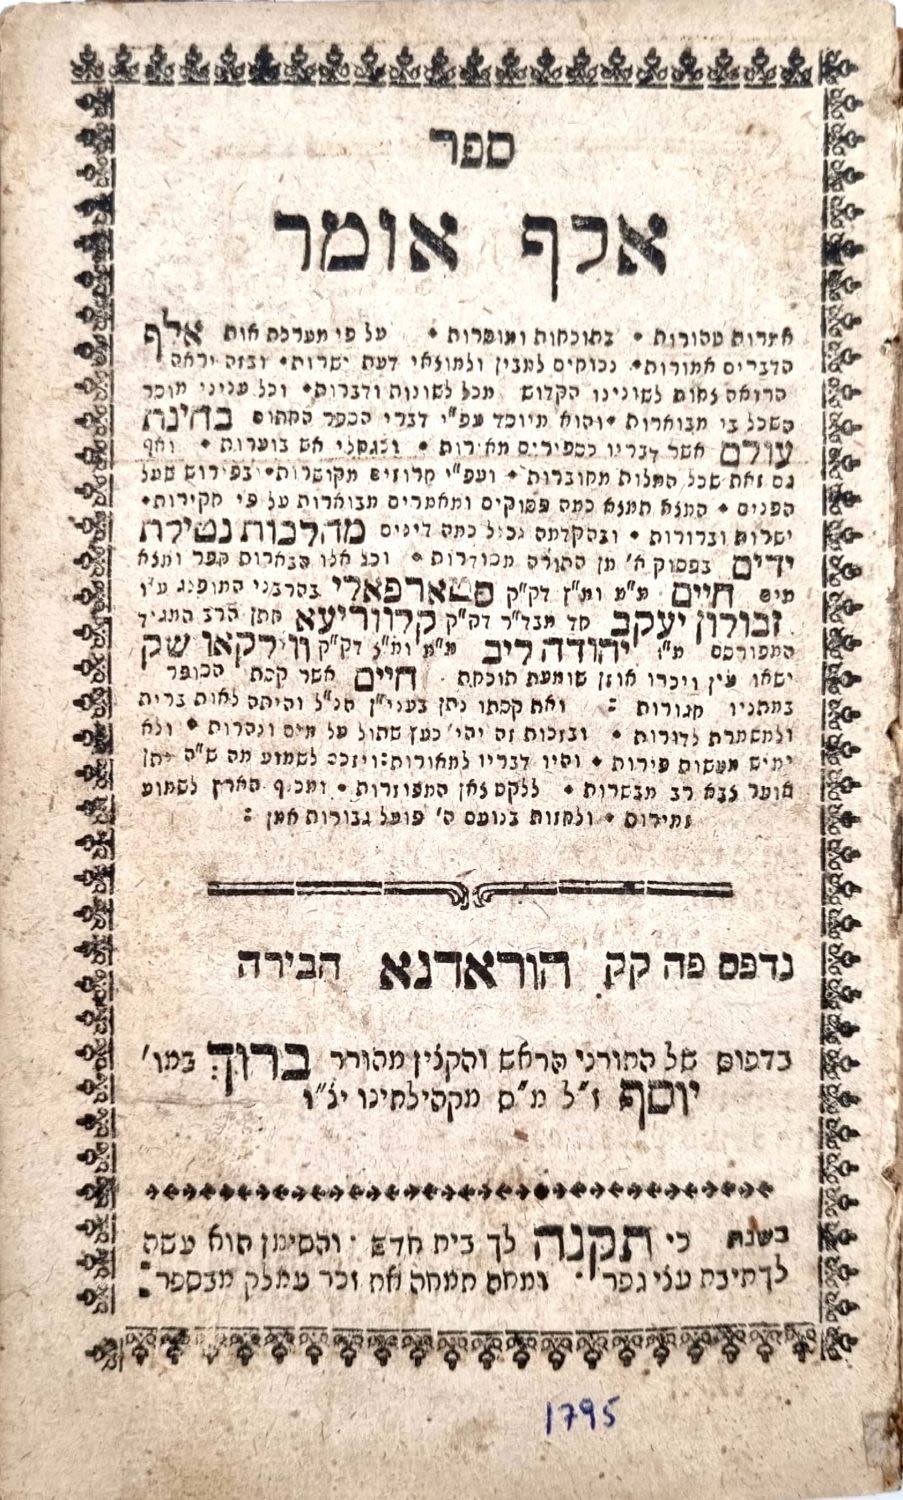 ספר
אלף אומר
אמרות טהורות • בתוכחות ומוסרות • על פי מערכת אות אלף
הדברים אמורות• נכוחים למבין ולמוצאי דעת ישרות• ובזה יראה
הרואה צחות לשונינו הקדוש מכל לשונות ודברות• וכל עניני מוסר
השכל בו מבוארות •והוא מיוסד עפ"י דברי הספר החתום בחינת
עולם אשר דבריו כספירים מאירות • וכגחלי אש בוערות • ואף
גם זאת שכל המלות מחוברות • ועפ"י חרוזים מקושרות• בפירוש שעל
הפנים • המצא תמצא כמה פסוקים ומאמרים מבוארות על פי חקירות•
ישרות וברורות • ובהקדמה נכלל כמה דינים מהלכות נטילת
ידים בפסוק א' מן התורה מסודרות • וכל אלו הבארות חפר ומצא
מים חיים מ"מ ומ"ץ דק"ק סטארפאלי בהרבני המופלג
זכורון יעקב דק"ק קרווריעא חתן הרב המגיד
המפורסם יהודה ליב מ"מ ומ"ץ דק"ק
ישאו עין ויכרו אוזן שומעת תוכחת חיים אשר קסת הסופר
במתניו חגורות : ואת קסתו נתן בעני"ן הנ"ל והיתה לאות ברית
ולמשמרת לדורות • ובזכות זה יהי' כעץ שתול על מים ונהרות • ולא
ימיש מעשות פירות • והיו דבריו למאורות: ויזכה לשמוע מה ש"ה יתן
אומר צבא רב מבשרות • ללקט צאן המפוזרות • ומכנף הארץ לשמוע
זמירות • ולחזות בנועם ה' פועל גבורות אמן :
נדפס פה קק הוראדנא הבירה
בדפוס של התורני הראש והקצין מהורר ברוך במו'
יוסף ז"ל מ"ס מקהילתינו יצ"ו
בשנת כי תקנה לך בית חדש • והסימן הוא עשה
לך תיבת עצי גפר • ומחה תמחה את זכר עמלק מבספר :
1795